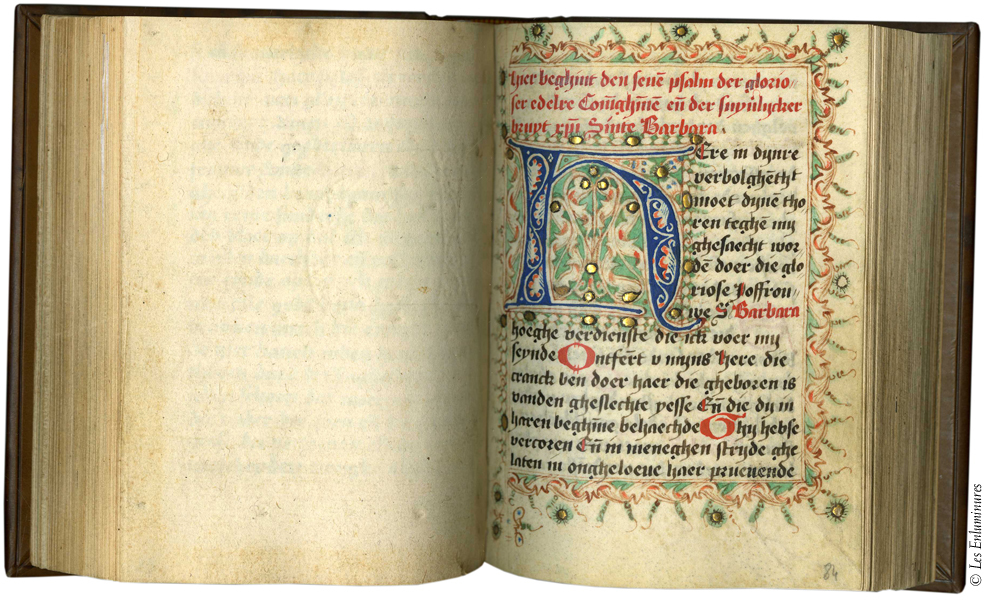 hier beghint den seuē psalm der glorio-
ser edelre Coniighīne eñ der suyulycker
bruyt xpī Sinte Barbara.
HEre in dynre
verbolghētht
moet dynē tho
ren teghē my
ghesaecht wor
dē doer die glo
riose Joffrou-
we S Barbara
hoeghe verdienste die ick voer my
seynde Ontfert v myns here die
cranck ben doer haer die gheboren is
vanden gheslechte yesse Eñ die dy in
haren beghīne behaechde Ghy hebse
vercoren Eñ in meneghen stryde ghe
laten in ongheloeue haer prueuende
84
© Les Enluminures